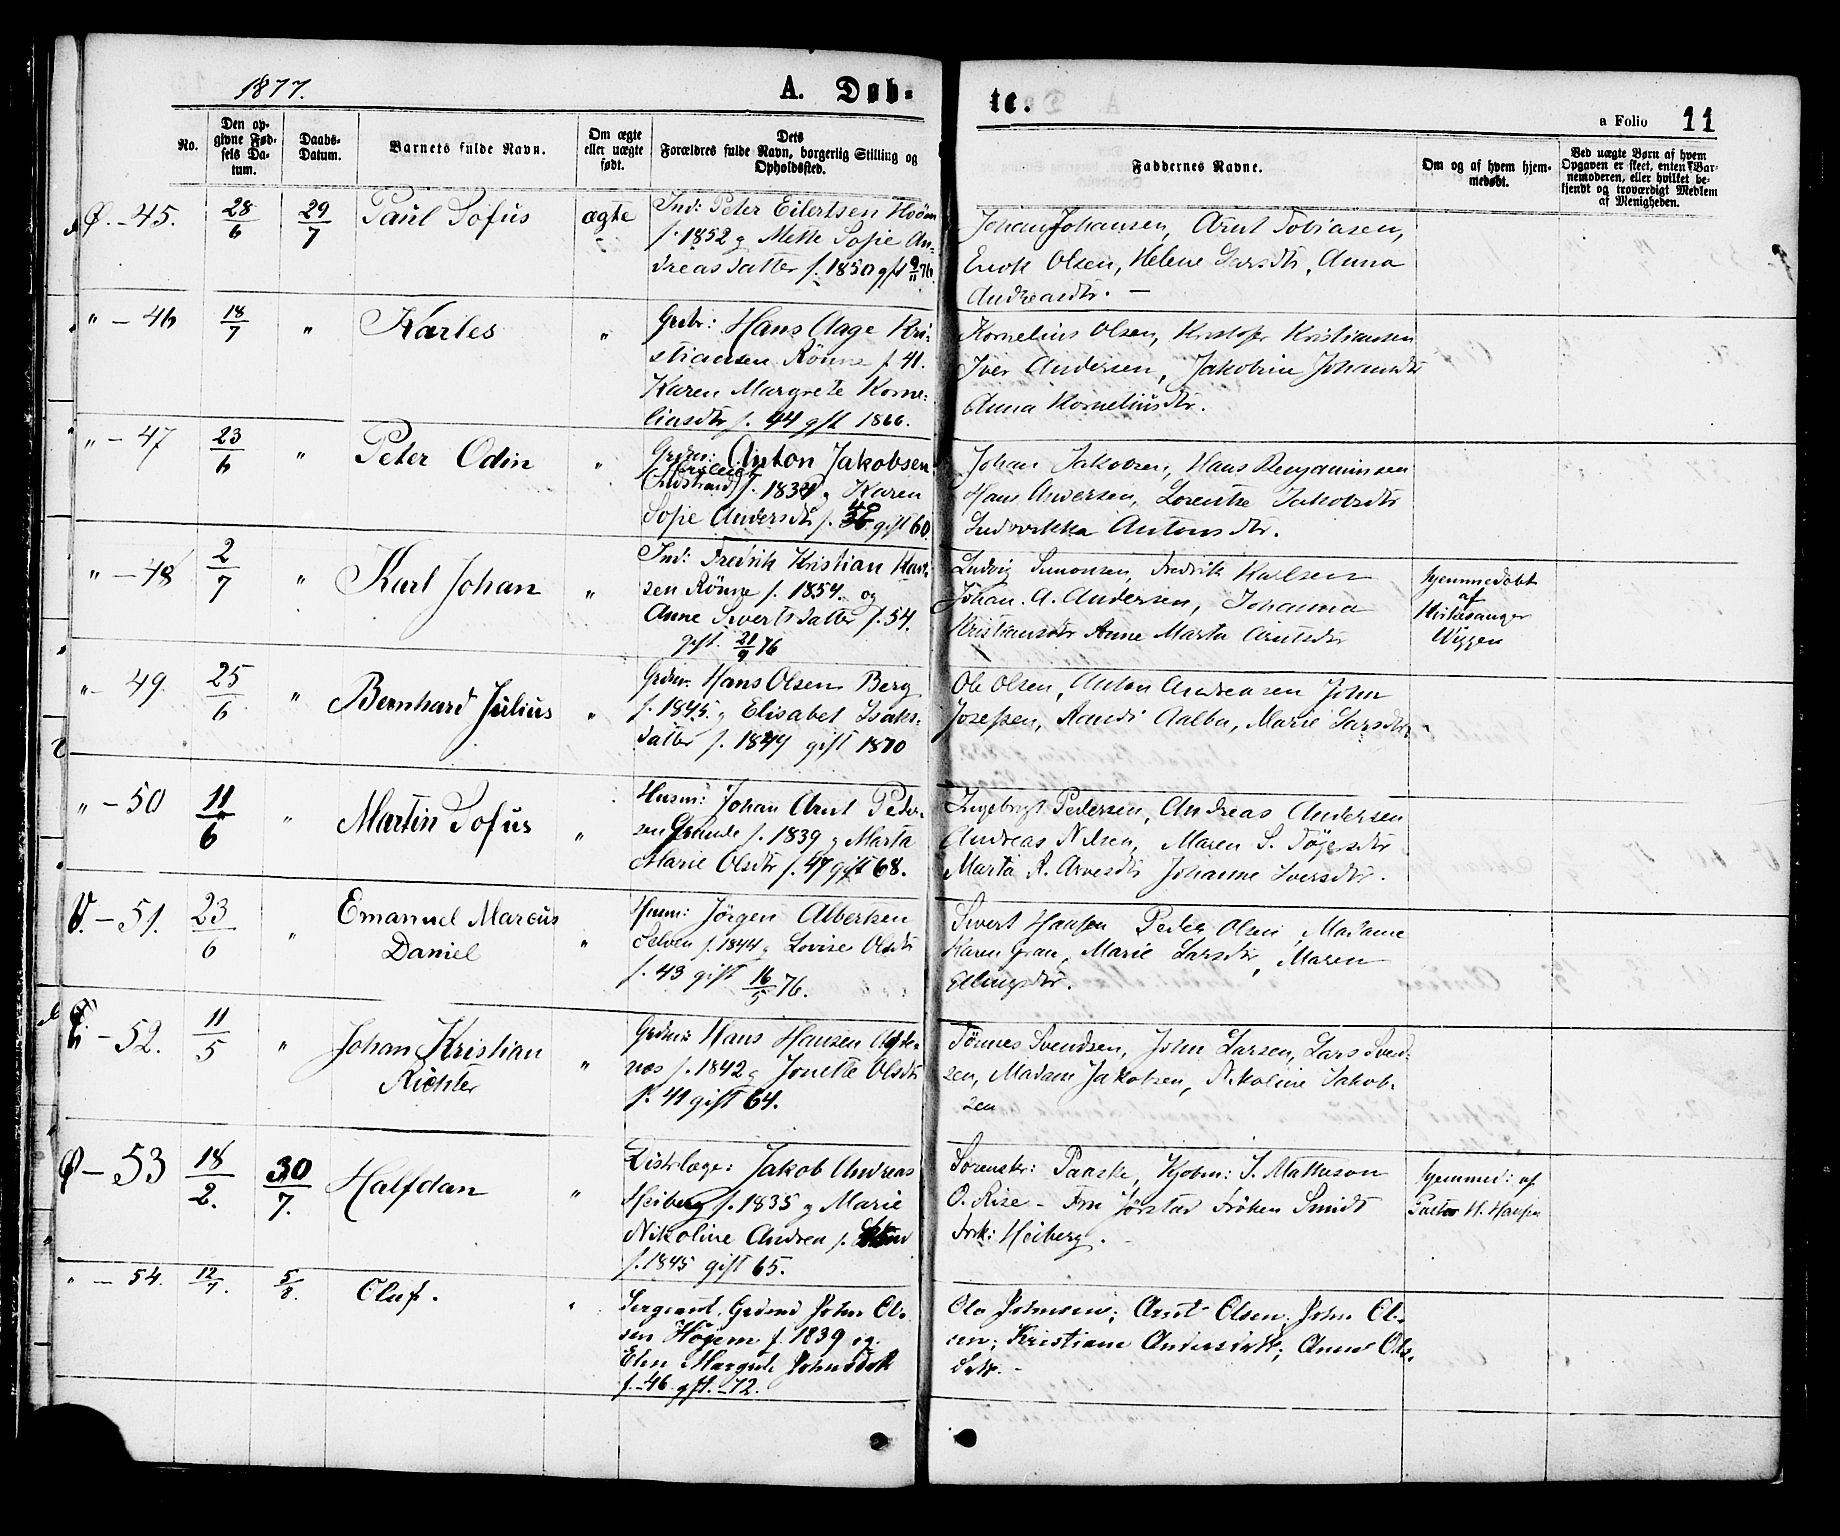 1877.
A. Døb-
te.
a Folio 11
No.
Den op-
givne Fød-
sels Da-
tum.
Daabs-
Datum.
Barnets fulde Navn.
Om ægte
eller uægte
født.
Dets
Forældres fulde Navn, borgerlig Stilling og
Opholdssted.
Faddernes Navne.
Om og af hvem hjem-
medøbt.
Ved uægte Børn af hvem
Opgaven er skeet, enten Bar-
nemoderen, eller hvilket be-
kjendt og troværdigt Medlem
af Menigheden.
Ø. - 45. 28/6 29/7 Paul Sofus ægte
Ind: Peter Eilertsen
f. 1852 g Mette Sofie An-
dreasdatter f. 1850 gft 9/11 76.
Johan Johansen, Arnt Tobiasen,
Enok Olsen, Helene Larsdtr, Anna
Andreasdtr. -
" - 46 18/7 " Karles "
Hans Aage Kri-
stiansen Rönne f. 41.
Karen Margrete Korne-
liusdtr f. 44 gift 1866.
Kornelius Olsen, Kristofer Kristiansen
Iver Andersen, Jakobine Johansdtr
Anna Korneliusdtr.
" - 47 23/6 " Peter Odin "
Grdm: Anton Jakobsen
f. 1834 g Karen
Sofie Andersdtr f. 40 gift 60
Johan Jakobsen, Hans Benjaminsen
Hans Andersen, Lorentse Jakobsdtr
Ludvikka Antonsdtr.
" - 48 2/7 " Karl Johan "
Ind: Fredrik Kristian Karl-
sen Rönne f. 1854. og
Anne Sivertsdatter f. 54.
gift. 21/9 76
Ludvig Simonsen, Fredrik Karlsen
Johan. A. Andersen, Johanna
Kristiansdtr Anne Marta Arntsdtr
hjemmedøbt
af
Kirkesanger
Wiggen
" - 49. 25/6 " Bernhard Julius "
Grdm. Hans Olsen Berg
f. 1845. g Elisabet Isaks-
datter f. 1844 gift 1870
Ole Olsen, Anton Andreasen John
Josefsen, Randi Aalbu, Marie Larsdtr.
" - 50 11/6 " Martin Sofus "
Husm: Johan Arnt Peder-
sen Grande f. 1839 g Marta
Marie Olsdtr f. 47 gift 68.
Ingebrigt Pedersen, Andreas Andersen
Andreas Nilsen, Maren S. Tøgersdtr
Marta R. Arnesdtr Johanne Iversdtr.
V. - 51. 23/6 " Emanuel Marcus
Daniel "
Husm: Jörgen Albertsen
Selven f. 1844 g Lovise Olsdtr
f. 43 gift 16/5 76.
Sivert Hansen Peder Olsen, Madame
Karen Gran, Marie Larsdtr, Maren
Ellingsdtr.
- 52. 11/5 " Johan Kristian
Richter "
Grdm: Hans Hansen
næs f. 1842 g Jonette Olsdtr
f. 41 gift 64.
Tönnes Svendsen, John Larsen, Lars Svend-
sen, Madam Jakobsen, Nikoline Jakob-
sen
Ø - 53 18/2. 30/7. Halfdan "
Distrlæge: Jakob Andreas
Heiberg f. 1835 g Marie
Nikoline Andrea f.
f. 1845 gift 65.
Sorenskr: Paaske, Kjobm: J. Matheson
O. Rise - Fru Jörstad Fröken Smidt
Frk: Heiberg.
hjemmed: af
Pastor H. Hansen
" - 54. 12/7. 5/8. Oluf. "
Sergeant, Grdmd John Ol-
sen Högem f. 1839 og
Elen Margrete Johnsdtr
f. -46 gft. -72.
Ole Johnsen; Arnt Olsen; John Ol-
sen; Kristiane Andersdtr; Anne Ols-
datr. -